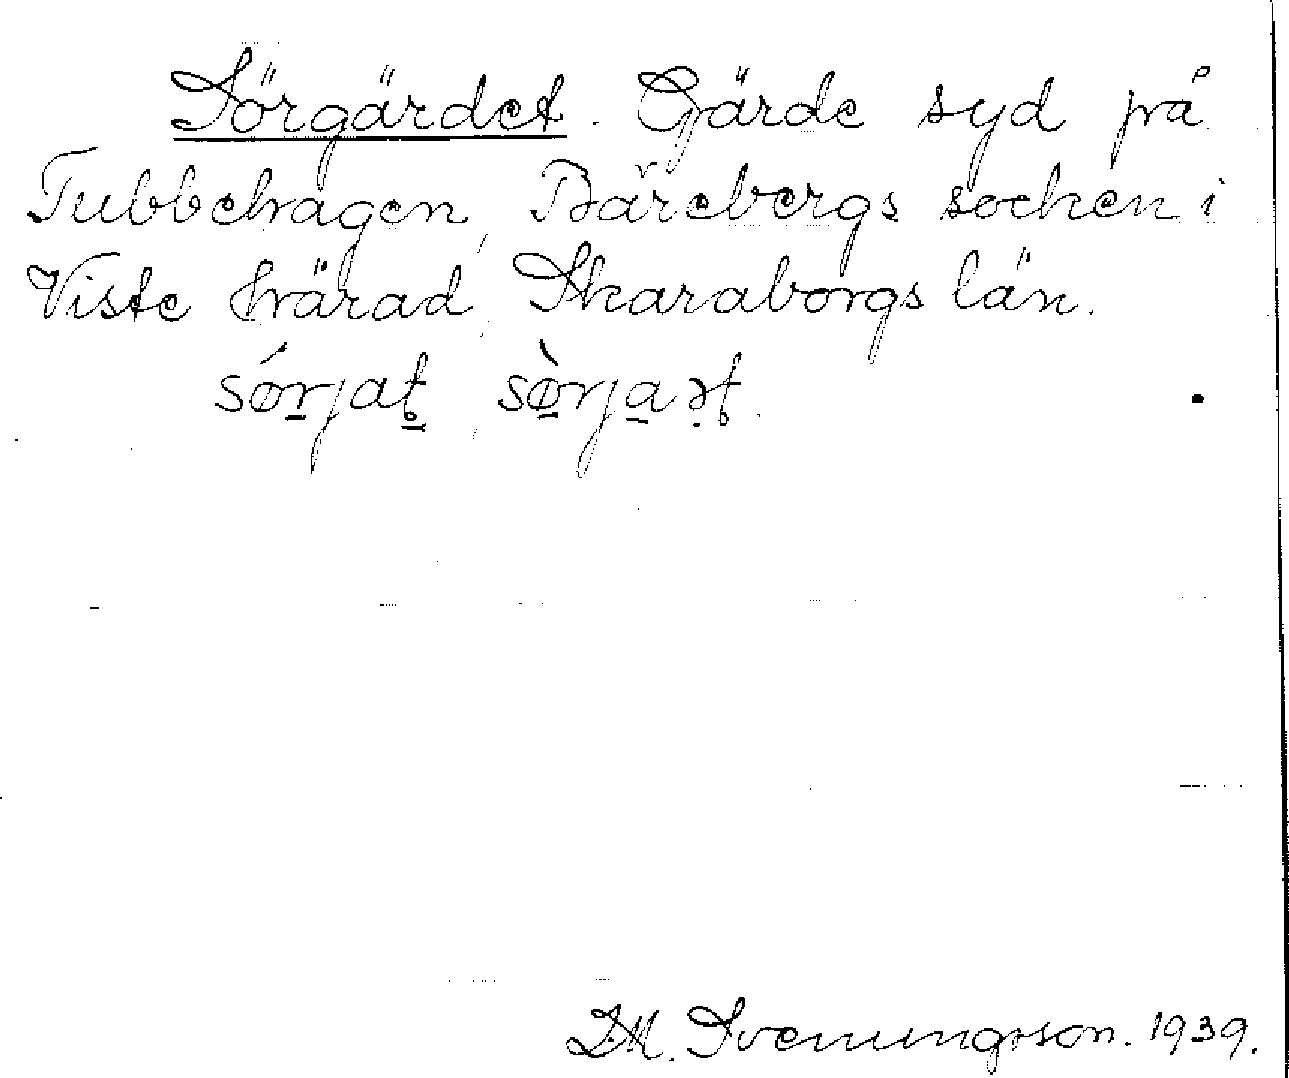 Sörgärdet. Gärde syd på
Tubbehagen, Bärebergs socken i
Viste härad, Skaraborgs län.
D.M. Svenningsson. 1939.